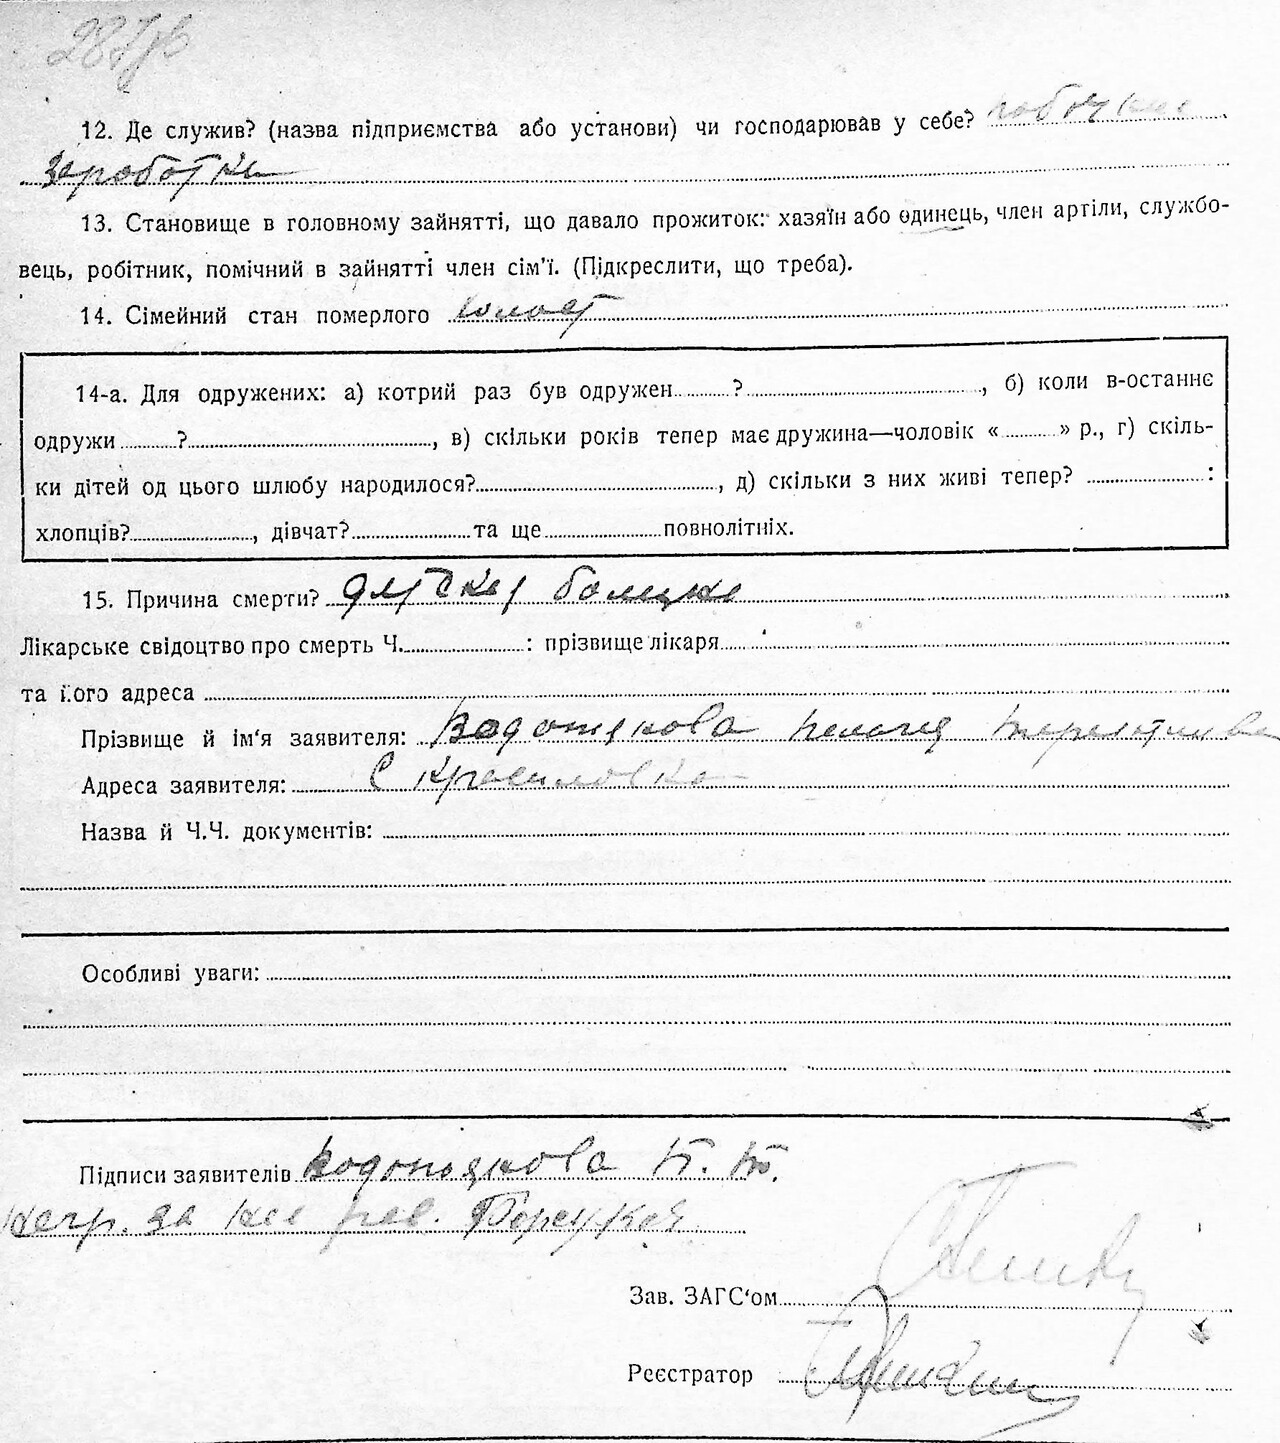 12. Де служив? (назва підприємства або установи) чи господарював у себе? побочные
заработки
13. Становище в головному зайнятті, що давало прожиток: хазяїн або одинець, член артіли, службо-
вець, робітник, помічний в зайнятті член сім'ї. (Підкреслити, що треба).
14. Сімейний стан померлого холост
14-а. Для одружених: а) котрий раз був одружен ? , б) коли в-останнє
одружи ? , в) скільки років тепер має дружина—чоловік « » р., г) скіль-
ки дітей од цього шлюбу народилося? , д) скільки з них живі тепер? :
хлопців? , дівчат? та ще повнолітніх.
15. Причина смерти?
Лікарське свідоцтво про смерть Ч. : прізвище лікаря
та його адреса
Прізвище й ім'я заявителя: Водопянова Пелагея
Адреса заявителя: С
Назва й Ч.Ч. документів:
Особливі уваги:
Підписи заявителів Водопянова П. П.
негр. за нее
Зав. ЗАГС'ом
Реєстратор